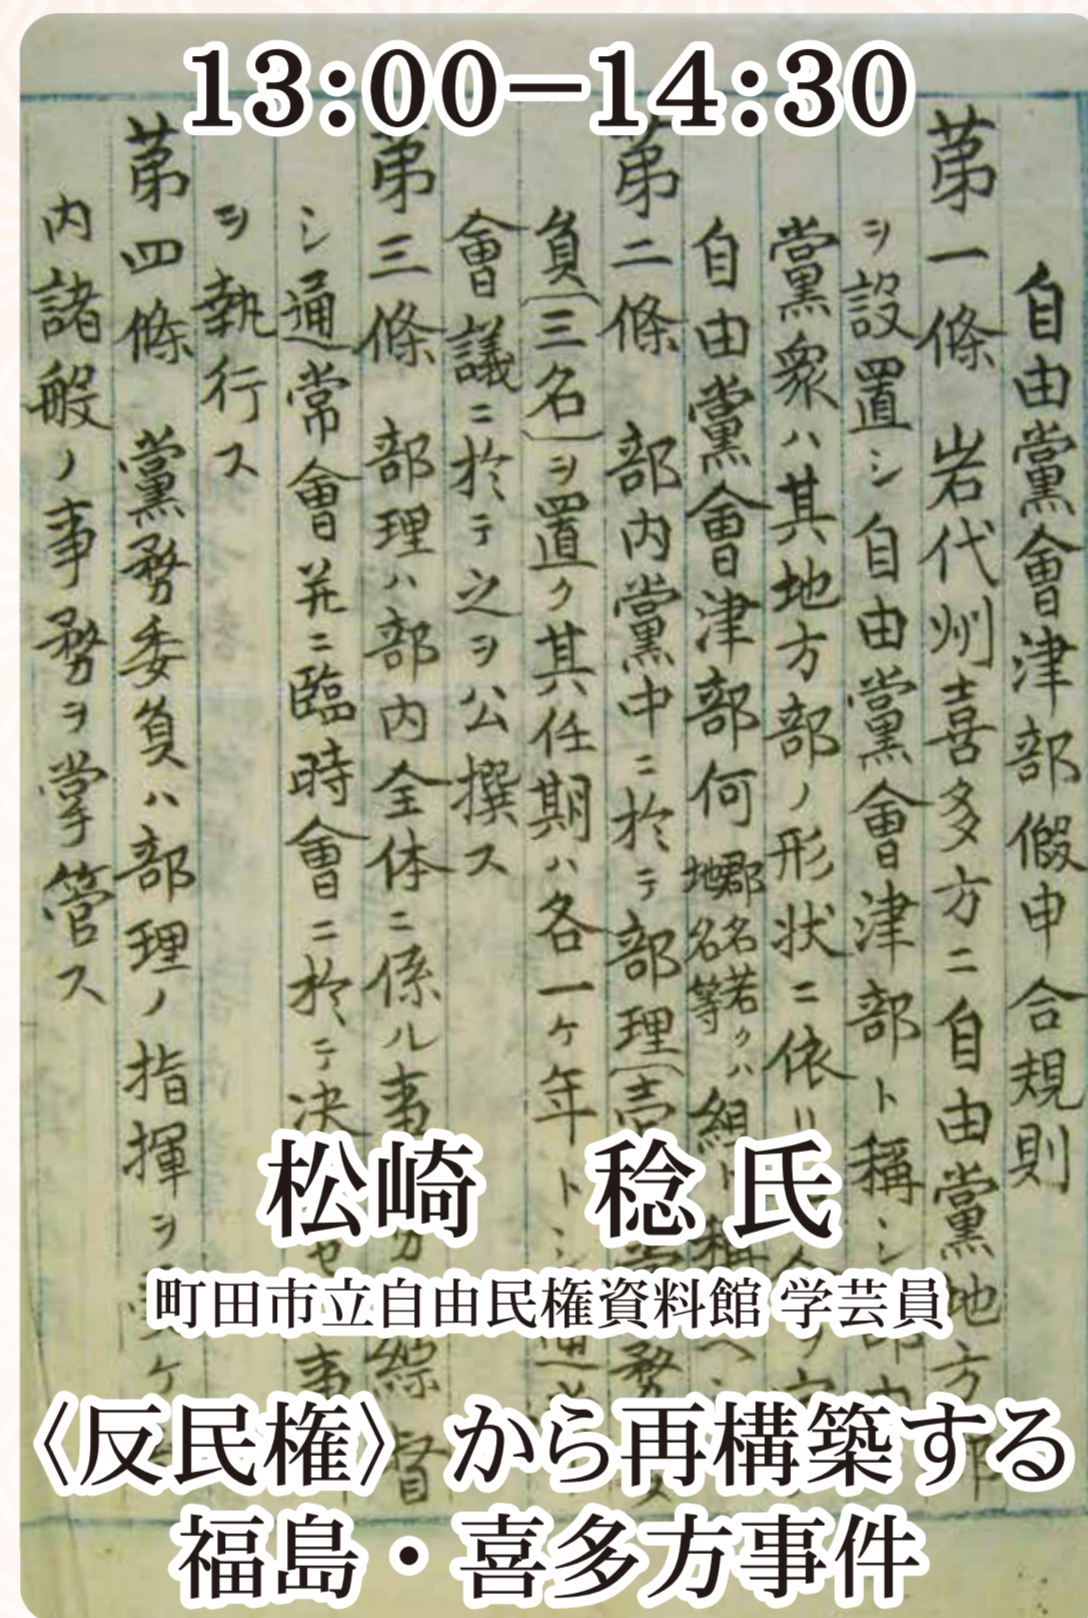 13:00−14:30
自由黨會津部假申合規則
第一條 岩代州喜多方ニ自由黨地方部
ヲ設置シ自由黨會津部ト稱シ部内
黨衆ハ其地方部ノ形状ニ依リ
自由黨會津部何郡名若クハ地名等組ト稱
第二條 部内黨中ニ於テ部理〔壱
員〔三名〕ヲ置ク其任期ハ各一ケ年トシ通常
會議ニ於テ之ヲ公撰ス
第三條 部理ハ部内全体ニ係ル事 綜督
シ通常會并ニ臨時會ニ於テ决 セ 事
ヲ執行ス
第四條 黨務委員ハ部理ノ指揮ヲ ケ
内諸般ノ事務ヲ掌管ス
松崎 稔 氏
町田市立自由民権資料館 学芸員
〈反民権〉から再構築する
福島・喜多方事件